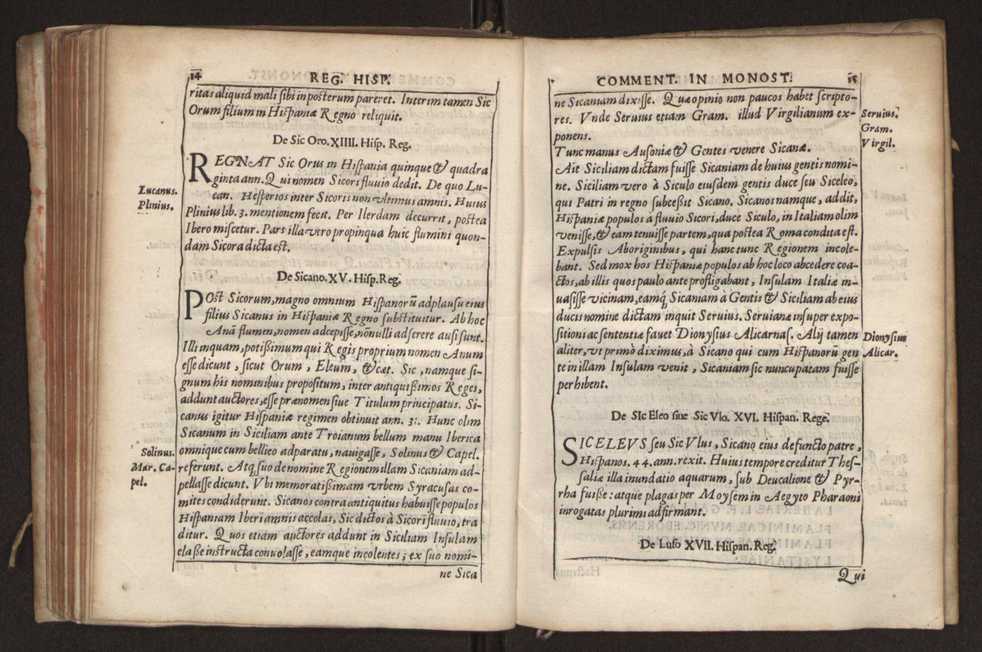 14
REG. HISP.
ritas aliquid mali sibi in posterum pareret. Interim tamen Sic
Orum filium in Hispaniæ Regno reliquit.
De Sic Oro. XIIII. Hisp. Reg.
REGNAT Sic Orus in Hispania quinque & quadra
ginta ann. Qui nomen Sicoris fluuio dedit. De quo Lu-
can. Hesperios inter Sicoris non vltimus amnis. Huius
Plinius lib. 3. mentionem fecit. Per Ilerdam decurrit, postea
Ibero miscetur. Pars illa vero propinqua huic flumini quon-
dam Sicora dicta est.
Lucanus.
Plinius.
De Sicano. XV. Hisp. Reg.
POst Sicorum, magno omnium Hispanorũ adplausu eius
filius Sicanus in Hispaniæ Regno substituitur. Ab hoc
Anã flumen, nomen adcepisse, nõnulli adserere ausi sunt.
Illi inquam, potißimum qui Regis proprium nomen Anum
esse dicunt, sicut Orum, Eleum, &cæt. Sic, namque si-
gnum his nominibus propositum, inter antiquißimos Reges,
addunt auctores, esse prænomen siue Titulum principatus. Si-
canus igitur Hispaniæ regimen obtinuit ann. 31. Hunc olim
Sicanum in Siciliam ante Troianum bellum manu Iberica
omnique cum bellico adparatu, nauigasse, Solinus & Capel.
referunt. Atq; suo de nomine Regionem illam Sicaniam ad-
pellasse dicunt. Vbi memoratißimam vrbem Syracusas co-
mites condiderunt. Sicanos contra antiquitus habuisse populos
Hispaniam Iberi amnis accolas, Sic dictos à Sicori fluuio, tra
ditur. Quos etiam auctores addunt in Siciliam Insulam
elasse instructa conuolasse, eamque incolentes; ex suo nomi-
ne Sica
Solinus.
Mar. Ca-
pel.
COMMENT. IN MONOST.
15
ne Sicaniam dixisse. Quæ opinio non paucos habet scripto-
res. Vnde Seruius etiam Gram. illud Virgilianum ex-
ponens.
Seruius.
Gram.
Virgil.
Tunc manus Ausoniæ & Gentes venere Sicanæ.
Ait Siciliam dictam fuisse Sicaniam de huius gentis nomi-
ne. Siciliam vero à Siculo eiusdem gentis duce seu Siceleo,
qui Patri in regno subceßit Sicano, Sicanos namque, addit,
Hispaniæ populos à fluuio Sicori, duce Siculo, in Italiam olim
venisse, & eam tenuisse partem, qua postea Roma condita est.
Expulsis Aboriginibus, qui hanc tunc Regionem incole-
bant. Sed mox hos Hispaniæ populos ab hoc loco abcedere coa-
ctos, ab illis quos paulo ante profligabant, Insulam Italiæ in-
uasisse vicinam, eamq; Sicaniam à Gentis & Siciliam ab eius
ducis nomine dictam inquit Seruius. Seruianæ insuper expo-
sitioni ac sententiæ fauet Dionysius Alicarnas. Alij tamen
aliter, vt primò diximus, à Sicano qui cum Hispanorũ gen
te in illam Insulam venit, Sicaniam sic nuncupatam fuisse
perhibent.
Dionysius
Alicar.
De SIc Eleo siue Sic Vlo. XVI. Hispan. Rege.
SICELEVS seu Sic Vlus, Sicano eius defuncto patre,
Hispanos. 44. ann. rexit. Huius tempore creditur Thes-
saliæ illa inundatio aquarum, sub Deucalione & Pyr-
rha fuiße: atque plagas per Moysem in Aegyto Pharaoni
inrogatas plurimi adfirmant.
De Luso XVII. Hispan. Reg.
Qui